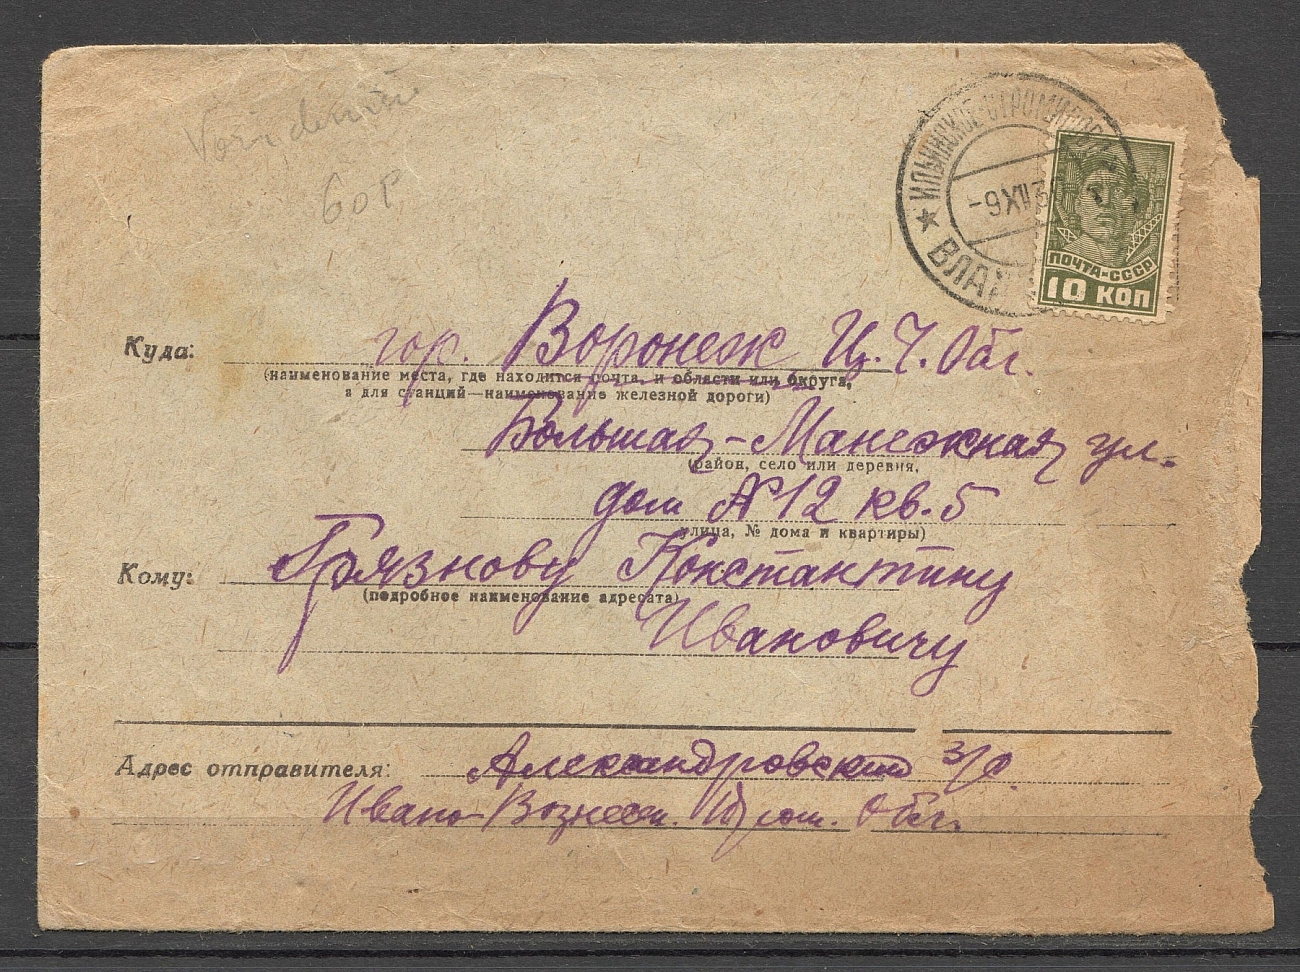 60р
ИЛЬИНСКОЕ-
-9 XII 3
ВЛАД
ПОЧТА-СССР
10 КОП
Куда: гор. Воронеж Ц. Ч. Обл.
(наименование места, где находится почта, и области или округа,
а для станций—наименование железной дороги)
Большая-Манежная ул.
(район, село или деревня,
дом № 12 кв. 5
улица, № дома и квартиры)
Кому: Грязнову Константину
(подробное наименование адресата)
Ивановичу
Адрес отправителя: Александровский
Ивано-Вознесен. Пром. Обл.